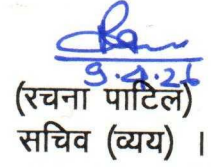 9.4.26
(रचना पाटिल)
सचिव (व्यय) ।